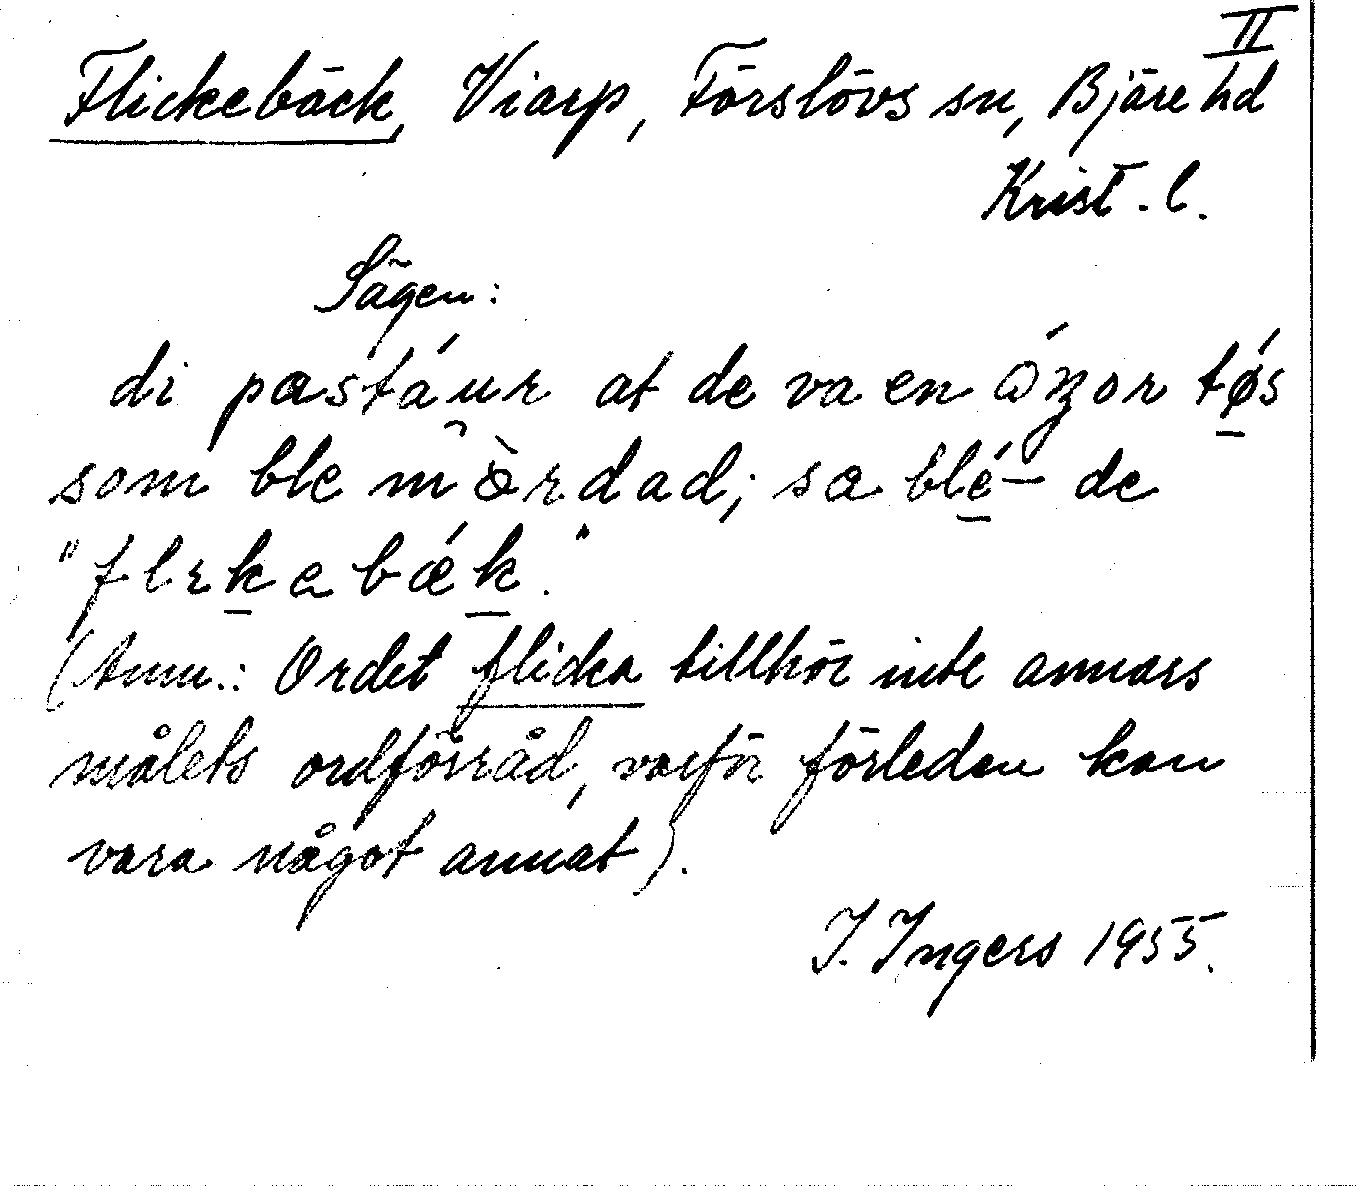 II
Flickebäck, Viarp, Förslövs sn, Bjäre hd
Krist. l.
Sägen:
di pastáur at de va en óŋor tǿ̲s
som ble mørdad; sa blé̲– de
"flɪk̲abǽk̲."
(Anm.: Ordet flicka tillhör inte annars
målets ordförråd, varför förleden kan
vara något annat).
I. Ingers 1955.